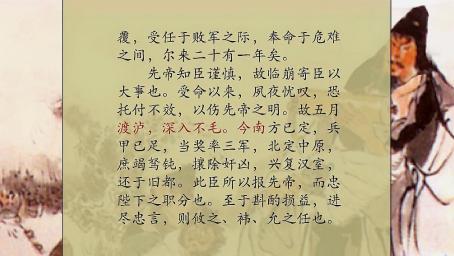 覆，受任于败军之际，奉命于危难
之间，尔来二十有一年矣。
先帝知臣谨慎，故临崩寄臣以
大事也。受命以来，夙夜忧叹，恐
托付不效，以伤先帝之明。故五月
渡泸，深入不毛。今南方已定，兵
甲已足，当奖率三军，北定中原，
庶竭驽钝，攘除奸凶，兴复汉室，
还于旧都。此臣所以报先帝，而忠
陛下之职分也。至于斟酌损益，进
尽忠言，则攸之、祎、允之任也。